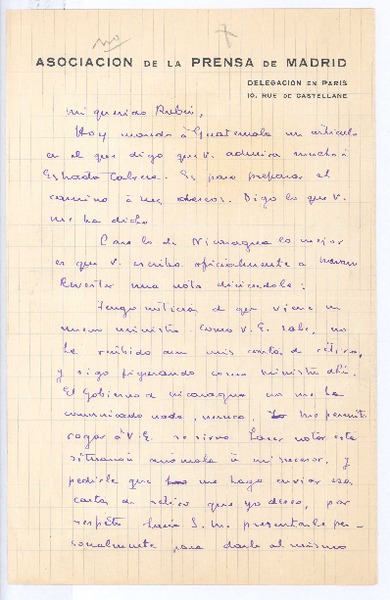 no
ASOCIACION DE LA PRENSA DE MADRID
DELEGACION EN PARIS
10, RUE DE CASTELLANE
Mi querido Rubén,
Hoy mando á Guatemala un artículo
en el que digo que V. admira mucho á
Estrada Cabrera. Es para preparar el
camino á sus deseos. Digo lo que V.
me ha dicho
Para lo de Nicaragua lo mejor
es que V. escriba oficialmente a
Reverter una nota diciendole:
Tengo noticias de que viene un
nuevo ministro. Como V. E. sabe, no
he recibido aun mis cartas de retiro,
y sigo figurando como ministro
El Gobierno de Nicaragua no me ha
comunicado nada, nunca. Yo me permito
rogar á V. E. se sirva hacer notar esta
situación anómala á mi sucesor, y
pedirle que me haga enviar esas
cartas de retiro que yo deseo, por
respeto hacia S. M. presentarle per-
sonalmente para darle al mismo